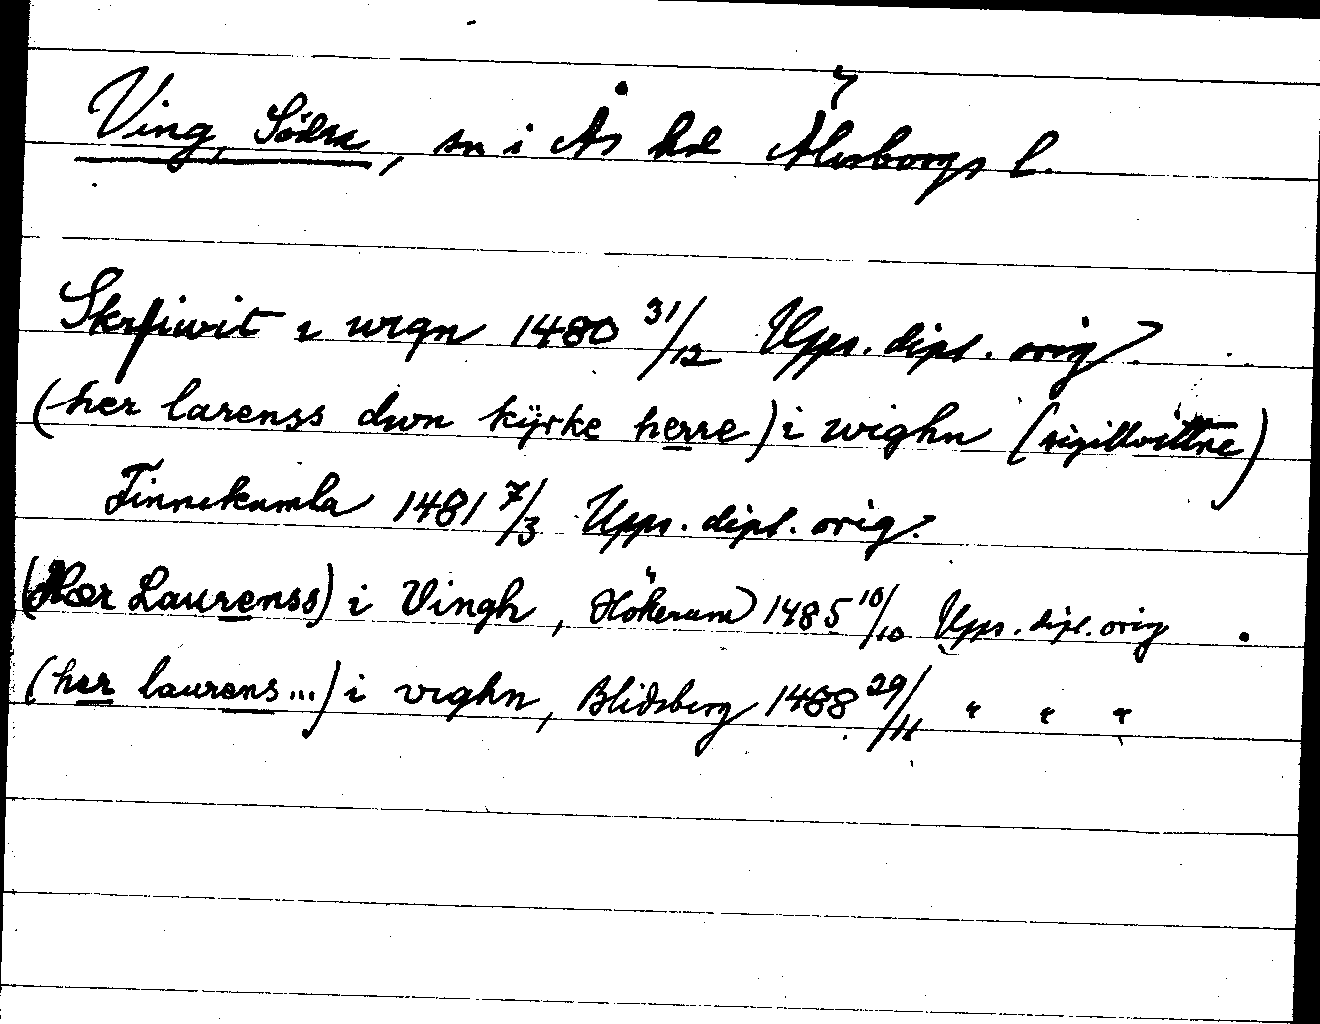 Ving, Södra, sn i Ås hd Älvsborgs l.
Skrfiwit i wign 1480 31/12 Upps. dipl. orig.
(her larenss dwn kÿrke herre) i wighn (sigillvittne)
Finnekumla 1481 7/3 Upps. dipl. orig.
(Hær Laurenss) i Vingh, Hökerum 1485 10/10 Upps. dipl. orig.
(her laurens...) i vighn, Blidsberg 1488 29/11 " " "